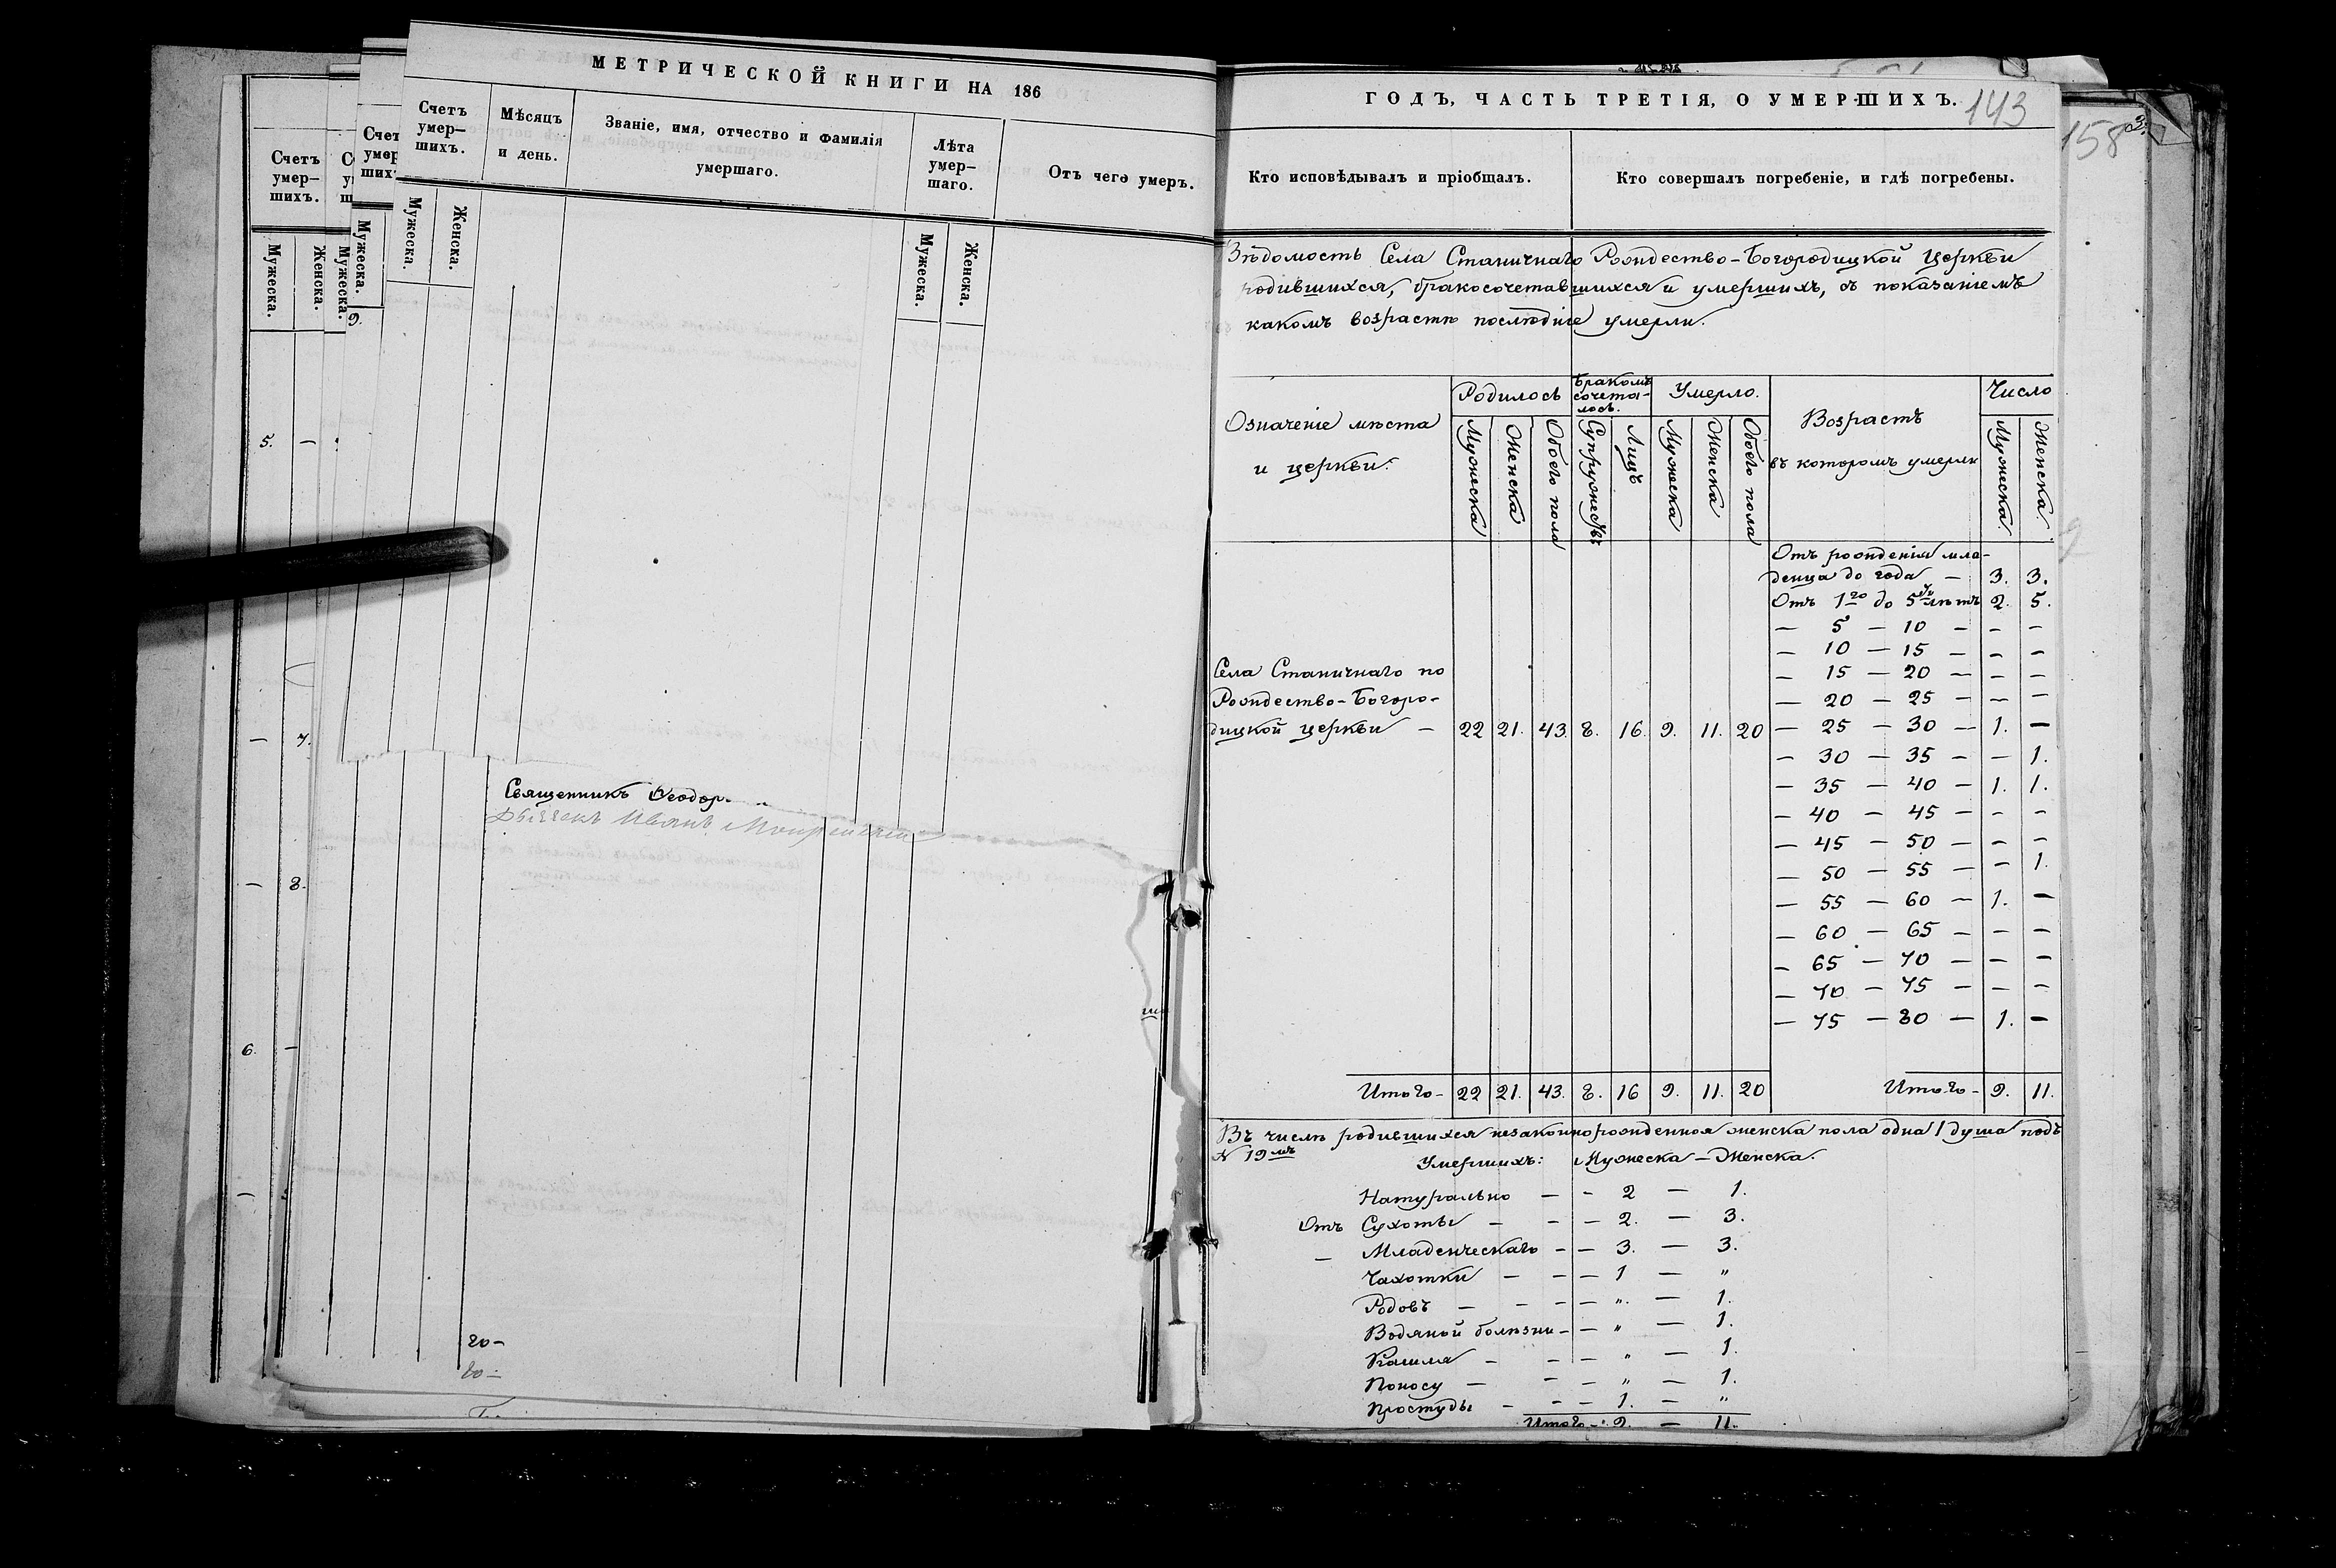 МЕТРИЧЕСКОЙ КНИГИ НА 186
Счетъ умер-шихъ.
Мѣсяцъ и день.
Званіе, имя, отчество и фамилія умершаго.
Лѣта умер-шаго.
Отъ чего умеръ.
Мужеска.
Женска.
Мужеска.
Женска.
Счетъ
умер-
шихъ.
Мужеска.
Женска.
Мужеска.
Мужеска.
9.
5. —
— 7.
— 8.
6. —
—
Священникъ Ѳеодор
20-
20-
ГОДЪ, ЧАСТЬ ТРЕТІЯ, О УМЕРШИХЪ.
143
158
Кто исповѣдывалъ и пріобщалъ.
Кто совершалъ погребеніе, и гдѣ погребены.
Вѣдомость Села Станичнаго Рождество-Богородицкой Церкви
родившихся, бракосочетавшихся и умершихъ, съ показаніемъ
какомъ возрастѣ послѣдніе умерли.
Означеніе мѣста
и церкви.
Родилось
Бракомъ сочета-лось.
Умерло.
Возрастъ
въ которомъ умерли
Число
Мужеска
Женска
Обоего пола
Супружествъ
Лицъ
Мужеска
Женска
Обоего пола
Мужеска.
Женска.
Отъ рожденія мла-
денца до года — 3. 3.
Отъ 1го до 5ти лѣтъ 2. 5.
— 5 — 10 — — —
— 10 — 15 — — —
— 15 — 20 — — —
— 20 — 25 — — —
— 25 — 30 — 1. —
— 30 — 35 — — 1.
— 35 — 40 — 1. 1.
— 40 — 45 — — —
— 45 — 50 — — —
— 50 — 55 — — 1.
— 55 — 60 — 1. —
— 60 — 65 — — —
— 65 — 70 — — —
— 70 — 75 — — —
— 75 — 80 — 1. —
Села Станичнаго по
Рождество-Богоро-
дицкой церкви — 22 21. 43. 8. 16. 9. 11. 20
Итого- 22 21. 43. 8. 16 9. 11. 20
Итого- 9. 11.
Въ числѣ родившихся незаконнорожденная женска пола одна 1 душа подъ
N 19мъ
Умершихъ: Мужеска — Женска.
Натурально — — 2 — 1.
Отъ Сухоты — — — 2. — 3.
— Младенческаго — — 3. — 3.
Чахотки — — — 1 — "
Родовъ — — — — ". — 1.
Водяной болѣзни — — " — 1.
Кашля — — — " — 1.
Поносу — — — " — 1.
Простуды — — — 1. — "
Итого —: 9. — 11.